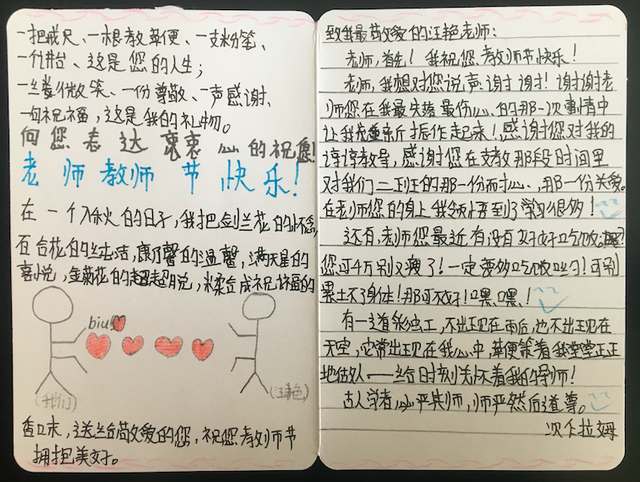 一把戒尺、一根教鞭、一支粉笔、
一个讲台、这是您的人生；
一丝微笑、一份尊敬、一声感谢、
一句祝福，这是我的礼物。
向您表达衷心的祝愿！
老师教师节快乐！
在一个火的日子，我把剑兰花的怀念
百合花的纯洁，康乃馨的温馨，满天星的
喜悦，金菊花的超脱，揉合成祝福的
biu
(我们)
(汪艳)
香囗末，送给敬爱的您，祝您教师节
拥抱美好。
致我最敬爱的汪艳老师：
老师，首先！我祝您教师节快乐！
老师，我想对您说声：谢谢！谢谢老
师您在我最失落最伤心的那一次事情中
让我重新振作起来！感谢您对我的
谆谆教导，感谢您在支教那段时间里
对我们二班的那一份耐心、那一份关爱。
在老师您的身上我领悟到了学习很多！
还有，老师您最近有没有好好吃饭
您可千万别又瘦了！一定要多吃饭！可别
累坏了身体！那可不好！嘿、嘿！
有一道彩虹，不出现在雨后，也不出现在
天空，它常出现在我心中，鞭策着我堂堂正正
地做人——给时刻关怀着我的导师！
古人学者必严其师，师严然后道尊。
次仁拉姆